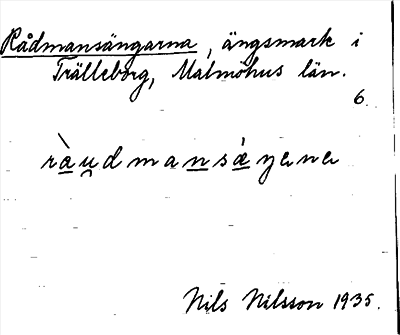 Rådmansängarna, ängsmark i
Trälleborg, Malmöhus län.
6.
ràu̯dmansáŋɐnɐ
Nils Nilsson 1935.